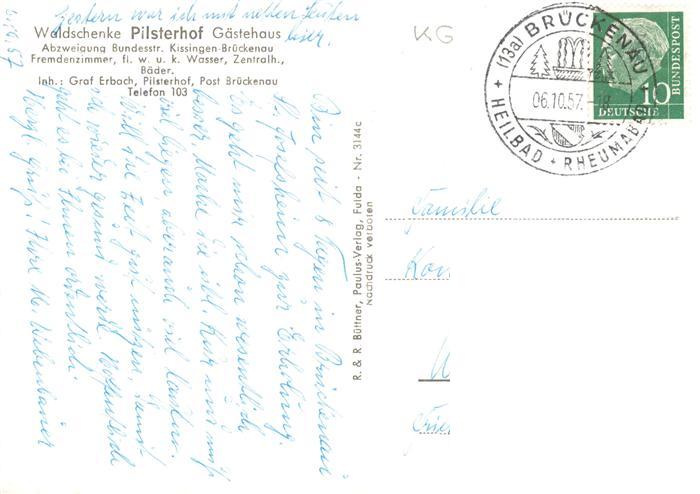 5.10.57
Gestern war ich mit netten Leuten
hier.
Waldschenke Pilsterhof Gästehaus
Abzweigung Bundesstr. Kissingen-Brückenau
Fremdenzimmer, fl. w. u. k. Wasser, Zentralh.,
Bäder.
Inh.: Graf Erbach, Pilsterhof, Post Brückenau
Telefon 103
Bin seit 8 Tagen in Brückenau
zur Erholung.
Es geht mir schon wesentlich
besser. Mache die übl. Kur und muß
viel liegen, aber auch viel laufen.
Will die Zeit gut nützen, damit
ich wieder gesund werde. Hoffentlich
geht es bei Ihnen ordentlich.
Herzl. Grüße! Ihre M.
R. & R. Büttner, Paulus-Verlag, Fulda - Nr. 3144c
Nachdruck verboten
KG
(13a) BRÜCKENAU
06.10.57.-18
+ HEILBAD + RHEUMA
10
DEUTSCHE
BUNDESPOST
Familie